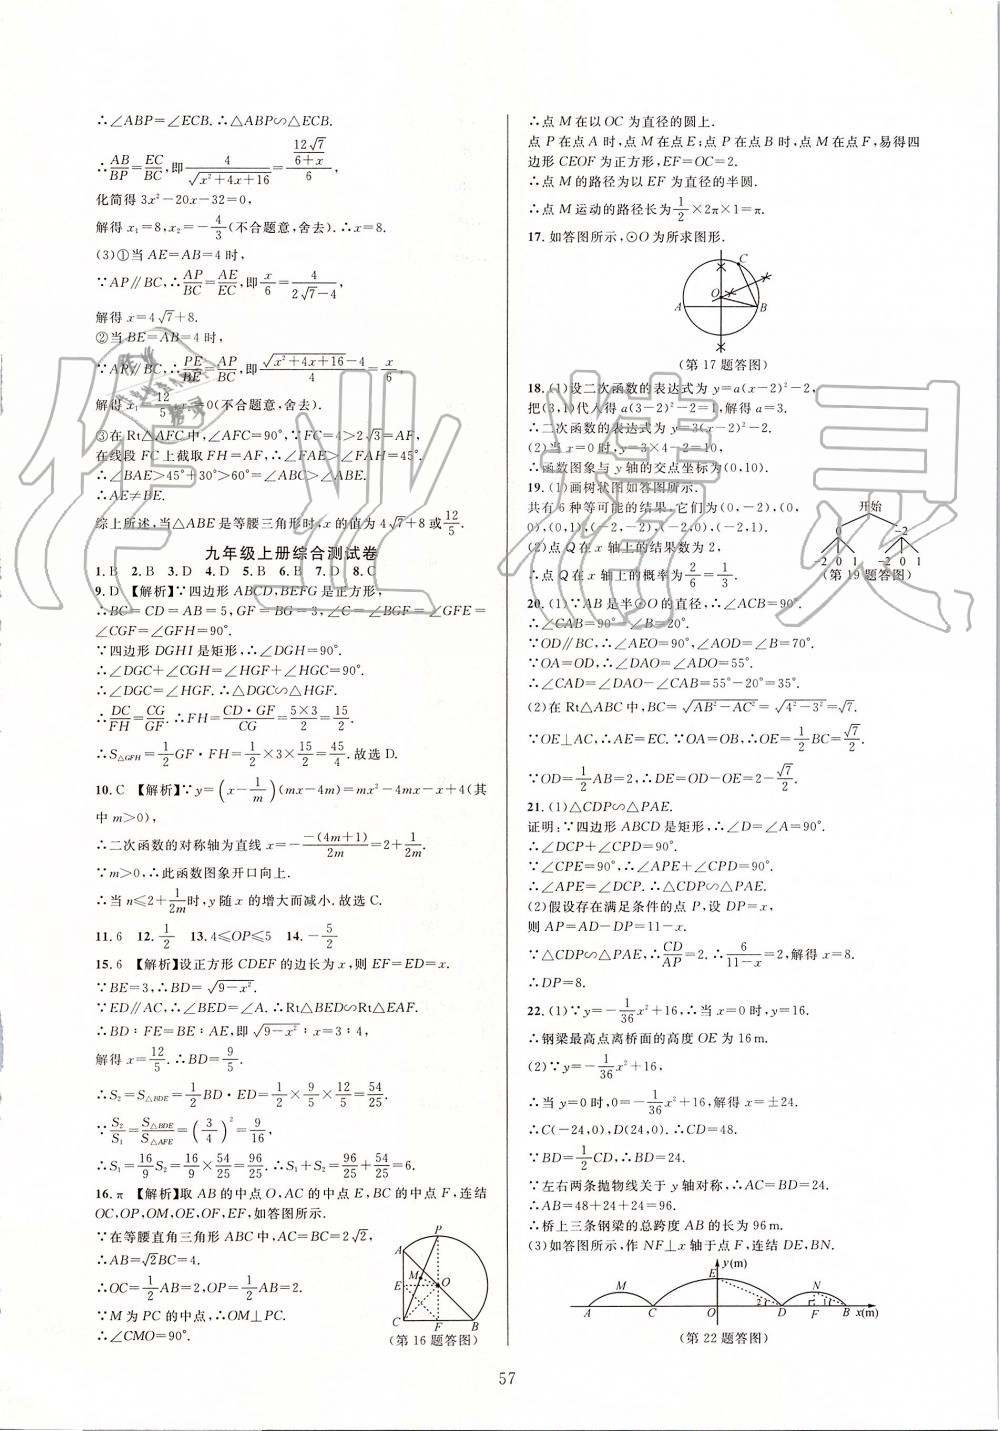 ∴∠ABP=∠ECB.∴△ABP∽△ECB.
∴AB/BP=EC/BC,即4/√(x²+4x+16)=(12√7/(6+x))/6,
化简得 3x²-20x-32=0,
解得 x₁=8,x₂=-4/3(不合题意,舍去).∴x=8.
(3)①当 AE=AB=4 时,
∵AP∥BC,∴AP/BC=AE/EC,即x/6=4/(2√7-4),
解得 x=4√7+8.
②当 BE=AB=4 时,
∵AP∥BC,∴PE/BE=AP/BC,即(√(x²+4x+16)-4)/4=x/6,
解得 x₁=12/5,x₂=0(不合题意,舍去).
③在 Rt△AFC 中,∠AFC=90°,∵FC=4>2√3=AF,
在线段 FC 上截取 FH=AF,∴∠FAH=45°.
∴∠BAE>45°+30°>60°=∠ABC>∠ABE.
∴AE≠BE.
综上所述,当△ABE 是等腰三角形时,x 的值为 4√7+8或12/5.
九年级上册综合测试卷
1. B 2. B 3. D 4. D 5. B 6. B 7. D 8. C
9. D 【解析】∵四边形 ABCD,BEFG 是正方形,
∴BC=CD=AB=5,GF=BG=3,∠C=∠BGF=∠GFE
=∠CGF=∠GFH=90°.
∵四边形 DGHI 是矩形,∴∠DGH=90°.
∴∠DGC+∠CGH=∠HGF+∠HGC=90°.
∴∠DGC=∠HGF.∴△DGC∽△HGF.
∴DC/FH=CG/GF.∴FH=CD·GF/CG=5×3/2=15/2.
∴S△GFH=1/2GF·FH=1/2×3×15/2=45/4.故选 D.
10. C 【解析】∵y=(x-1/m)(mx-4m)=mx²-4mx-x+4(其
中 m>0),
∴二次函数的对称轴为直线 x=--(4m+1)/2m=2+1/2m.
∵m>0,∴此函数图象开口向上.
∴当 n≤2+1/2m时,y 随 x 的增大而减小.故选 C.
11. 6 12. 1/2 13. 4≤OP≤5 14. -5/2
15. 6 【解析】设正方形 CDEF 的边长为 x,则 EF=ED=x.
∵BE=3,∴BD=√(9-x²).
∵ED∥AC,∴∠BED=∠A.∴Rt△BED∽Rt△EAF.
∴BD∶FE=BE∶AE,即√(9-x²)∶x=3∶4,
解得 x=12/5.∴BD=9/5.
∴S₂=S△BDE=1/2BD·ED=1/2×9/5×12/5=54/25.
∵S₂/S₁=S△BDE/S△AFE=(3/4)²=9/16,
∴S₁=16/9S₂=16/9×54/25=96/25.∴S₁+S₂=96/25+54/25=6.
16. π 【解析】取 AB 的中点 O,AC 的中点 E,BC 的中点 F,连结
OC,OP,OM,OE,OF,EF,如答图所示.
∵在等腰直角三角形 ABC 中,AC=BC=2√2,
∴AB=√2BC=4.
∴OC=1/2AB=2,OP=1/2AB=2.
∵M 为 PC 的中点,∴OM⊥PC.
∴∠CMO=90°.
P
A
M
E
O
C
F
B
(第 16 题答图)
∴点 M 在以 OC 为直径的圆上.
点 P 在点 A 时,点 M 在点 E;点 P 在点 B 时,点 M 在点 F,易得四
边形 CEOF 为正方形,EF=OC=2.
∴点 M 的路径为以 EF 为直径的半圆.
∴点 M 运动的路径长为1/2×2π×1=π.
17. 如答图所示,⊙O 为所求图形.
C
O
A
B
(第 17 题答图)
18. (1)设二次函数的表达式为 y=a(x-2)²-2,
把(3,1)代入得 a(3-2)²-2=1,解得 a=3.
∴二次函数的表达式为 y=3(x-2)²-2.
(2)当 x=0 时,y=3×4-2=10,
∴函数图象与 y 轴的交点坐标为(0,10).
19. (1)画树状图如答图所示.
共有 6 种等可能的结果,它们为(0,-2),(0,
0),(0,1),(-2,-2),(-2,0),(-2,1).
(2)点 Q 在 x 轴上的结果数为 2,
∴点 Q 在 x 轴上的概率为2/6=1/3.
开始
0 -2
-2 0 1 -2 0 1
(第 19 题答图)
20. (1)∵AB 是半⊙O 的直径,∴∠ACB=90°.
∴∠CAB=90°-∠B=20°.
∵OD∥BC,∴∠AEO=90°,∠AOD=∠B=70°.
∵OA=OD,∴∠DAO=∠ADO=55°.
∴∠CAD=∠DAO-∠CAB=55°-20°=35°.
(2)在 Rt△ABC 中,BC=√(AB²-AC²)=√(4²-3²)=√7.
∵OE⊥AC,∴AE=EC.∵OA=OB,∴OE=1/2BC=√7/2.
∵OD=1/2AB=2,∴DE=OD-OE=2-√7/2.
21. (1)△CDP∽△PAE.
证明:∵四边形 ABCD 是矩形,∴∠D=∠A=90°.
∴∠DCP+∠CPD=90°.
∵∠CPE=90°,∴∠APE+∠CPD=90°.
∴∠APE=∠DCP.∴△CDP∽△PAE.
(2)假设存在满足条件的点 P,设 DP=x,
则 AP=AD-DP=11-x.
∵△CDP∽△PAE,∴CD/AP=2,∴6/(11-x)=2,解得 x=8.
∴DP=8.
22. (1)∵y=-1/36x²+16,∴当 x=0 时,y=16.
∴钢梁最高点离桥面的高度 OE 为 16 m.
(2)∵y=-1/36x²+16,
∴当 y=0 时,0=-1/36x²+16,解得 x=±24.
∴C(-24,0),D(24,0).∴CD=48.
∵BD=1/2CD,∴BD=24.
∵左右两条抛物线关于 y 轴对称,∴AC=BD=24.
∴AB=48+24+24=96.
∴桥上三条钢梁的总跨度 AB 的长为 96 m.
(3)如答图所示,作 NF⊥x 轴于点 F,连结 DE,BN.
y(m)
M E N
A C O D F B x(m)
(第 22 题答图)
57
作业精灵